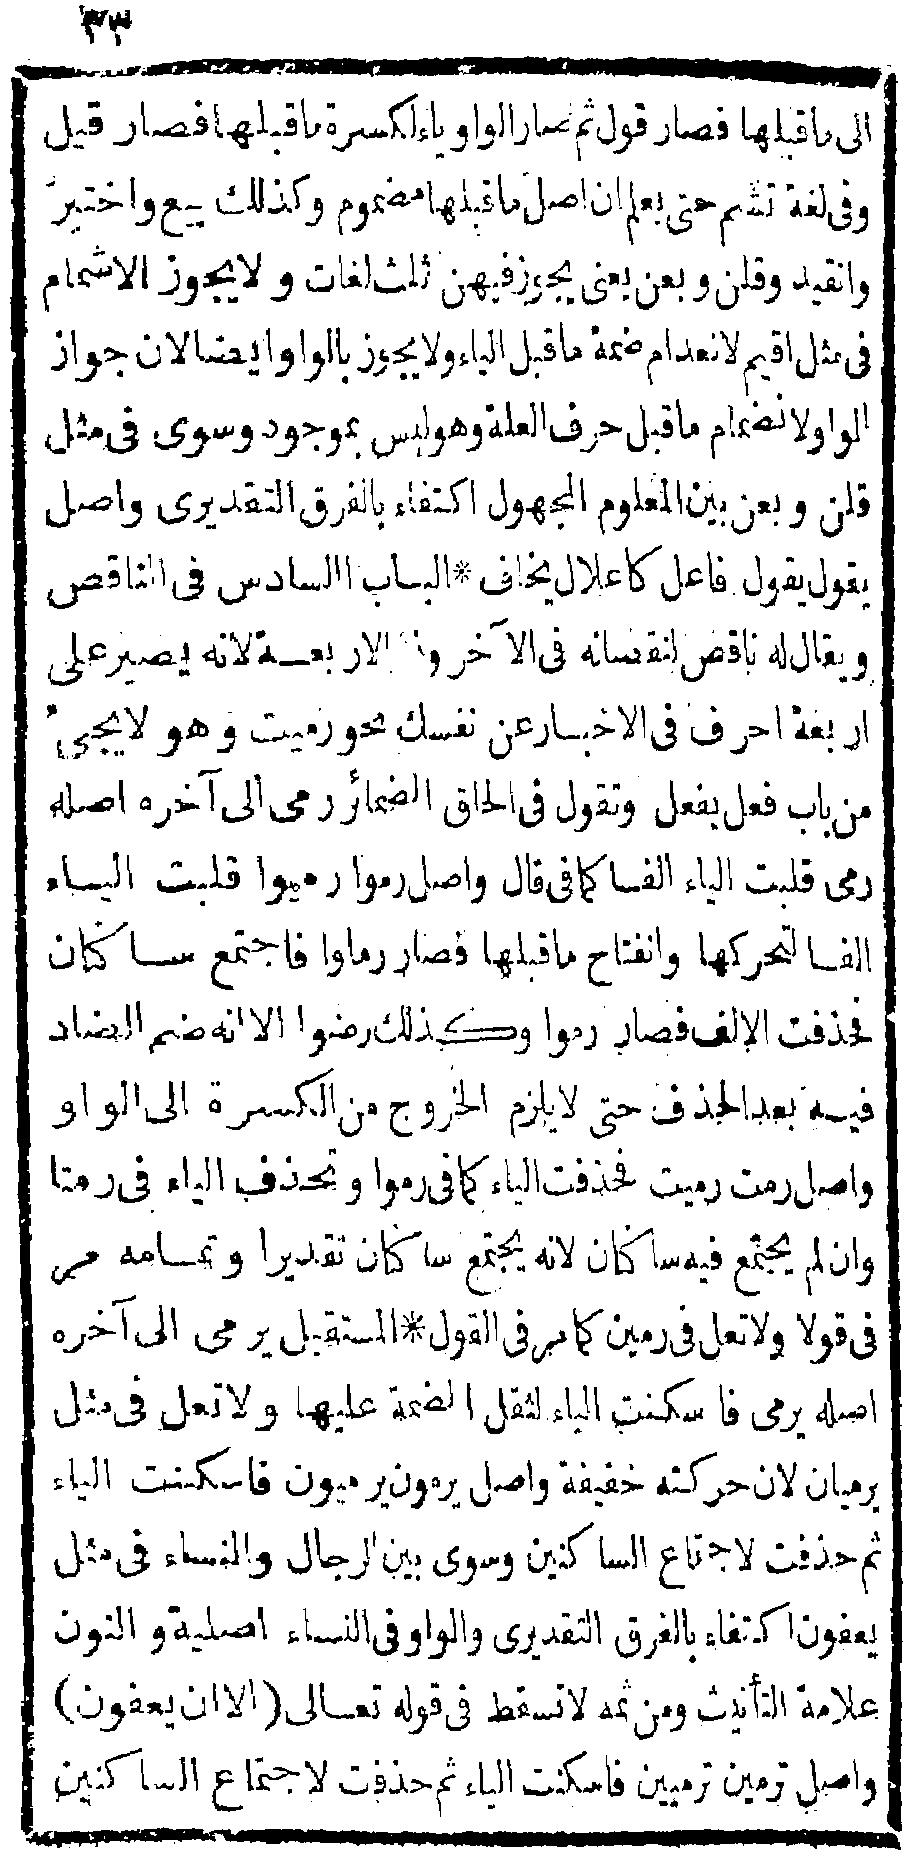 ٣٣
الى ماقبلها فصار قول ثم صار الواو ياء لكسرة ماقبلها فصار قيل
وفى لغة تشم حتى يعلم ان اصل ماقبلها مضموم وكذلك بيع واختير
وانقيد وقلن وبعن يعنى يجوز فيهن ثلث لغات ولا يجوز الاشمام
فى مثل اقيم لانعدام ضمة ماقبل الياء ولا يجوز بالواو ايضا لان جواز
الواو لانضمام ماقبل حرف العلة وهو ليس بموجود وسوى فى مثل
قلن وبعن بين المعلوم المجهول اكتفاء بالفرق التقديرى واصل
يقول يقول فاعل كاعلال يخاف * الباب السادس فى الناقص
ويقال له ناقص لنقصانه فى الآخر الاربعة لانه يصير على
اربعة احرف فى الاخبار عن نفسك نحو رميت وهو لا يجئ
من باب فعل يفعل وتقول فى الحاق الضمائر رمى الى آخره اصله
رمى قلبت الياء الفا كما فى قال واصل رموا رميوا قلبت الياء
الفا لتحركها وانفتاح ماقبلها فصار رماوا فاجتمع ساكنان
فحذفت الالف فصار رموا وكذلك رضوا الا انه ضم الضاد
فيه بعد الحذف حتى لا يلزم الخروج من الكسرة الى الواو
واصل رمت رميت فحذفت الياء كما فى رموا وتحذف الياء فى رمتا
وان لم يجتمع فيه ساكنان لانه يجتمع ساكنان تقديرا وتمامه مر
فى قولا ولا تعل فى رمين كما مر فى القول * المستقبل يرمى الى آخره
اصله يرمى فاسكنت الياء لثقل الضمة عليها ولا تعل فى مثل
يرميان لان حركته خفيفة واصل يرمون يرميون فاسكنت الياء
ثم حذفت لاجتماع الساكنين وسوى بين الرجال والنساء فى مثل
يعفون اكتفاء بالفرق التقديرى والواو فى النساء اصلية والنون
علامة التأنيث ومن ثمه لا تسقط فى قوله تعالى (الا ان يعفون)
واصل ترمين ترميين فاسكنت الياء ثم حذفت لاجتماع الساكنين